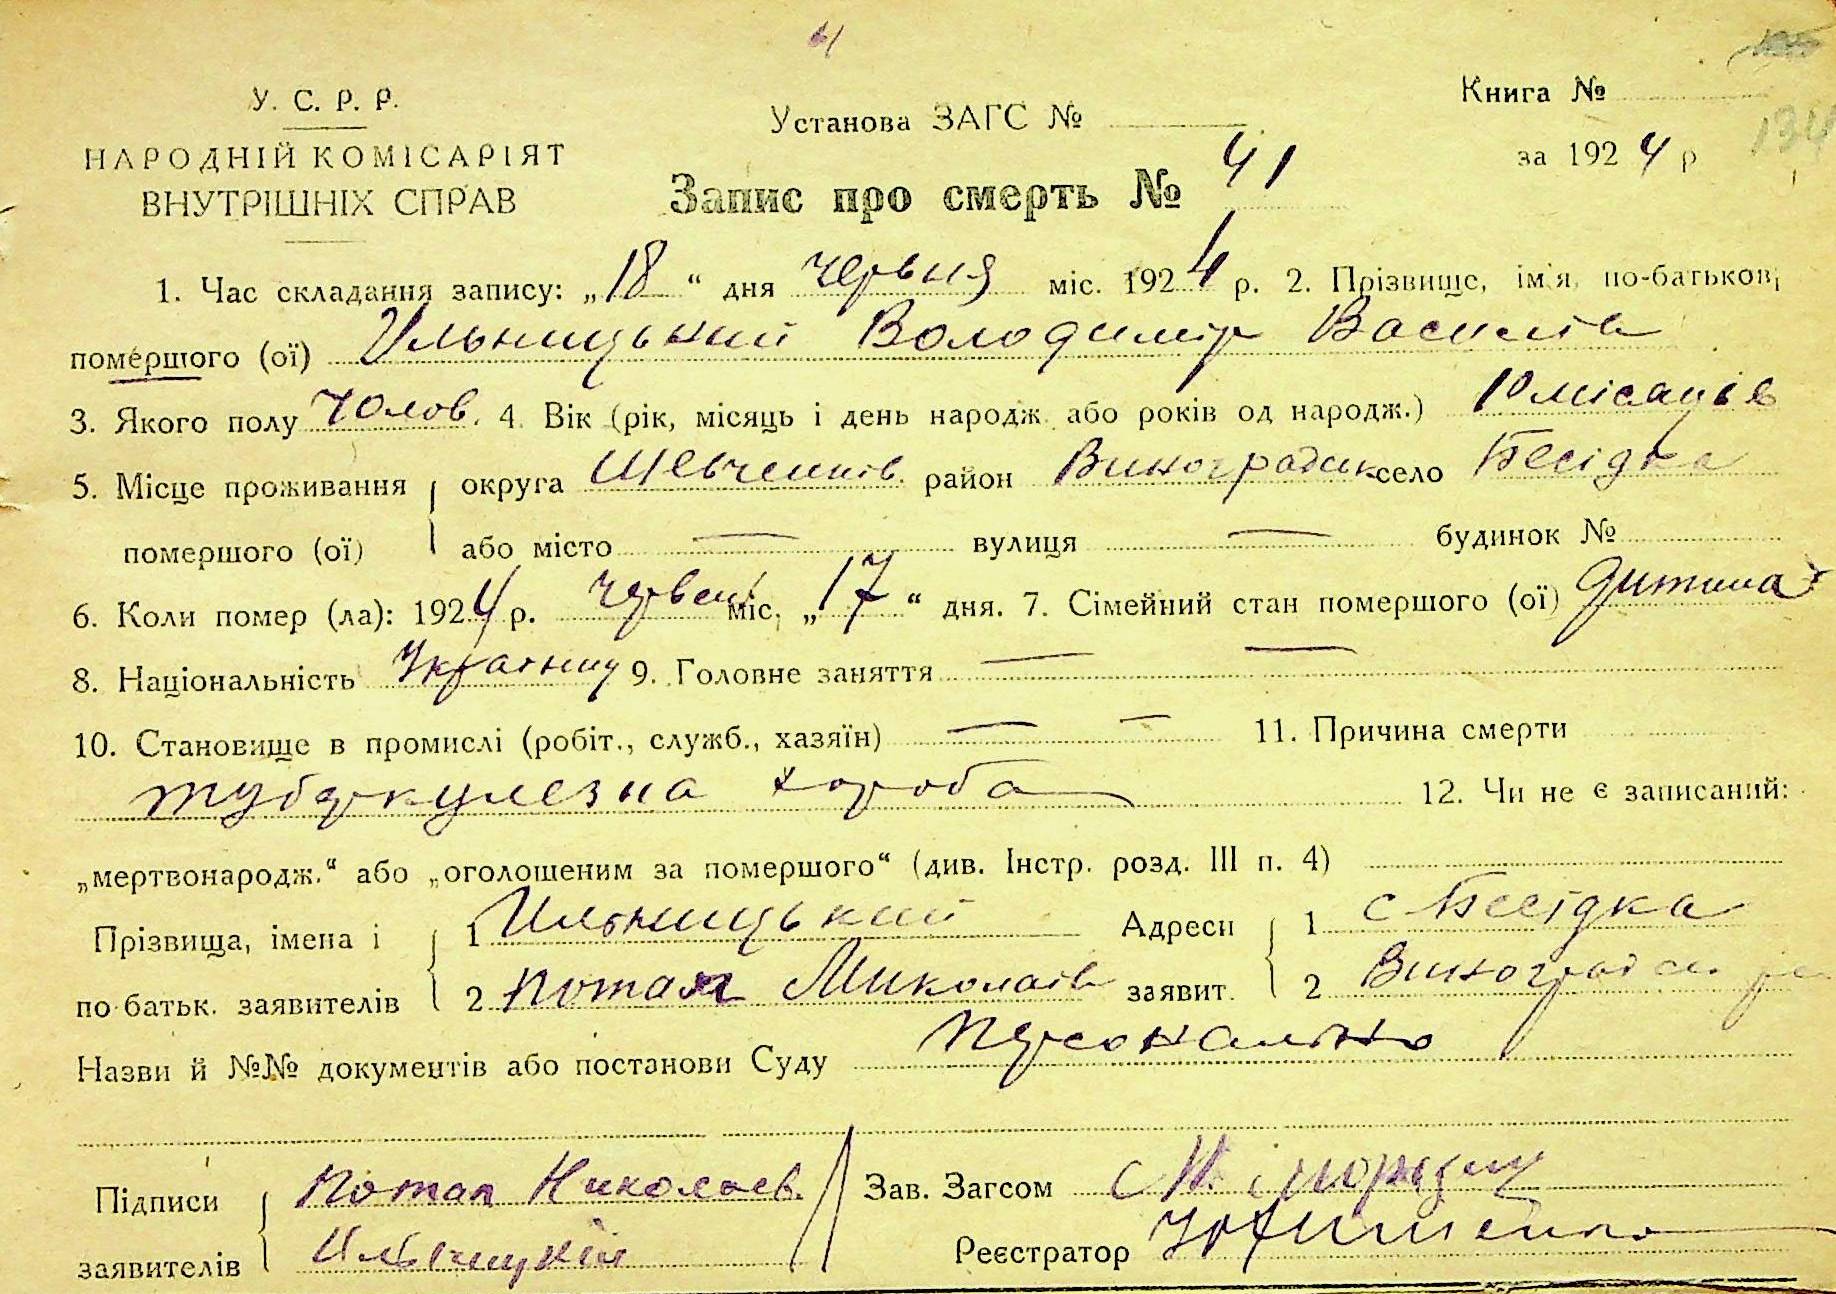 У. С. Р. Р.
НАРОДНІЙ КОМІСАРІЯТ
ВНУТРІШНІХ СПРАВ
Установа ЗАГС №
Книга №
134
за 1924 р
Запис про смерть № 41
1. Час складання запису: „18“ дня червня міс. 1924 р. 2. Прізвище, ім'я, по-батькові
помершого (ої) Ильницький Володимір Василів
3. Якого полу Чолов. 4. Вік (рік, місяць і день народж. або років од народж.) 10 місяців
5. Місце проживання помершого (ої) округа Шевченків. район Виноградськ село Бесідка
або місто — вулиця — будинок №
6. Коли помер (ла): 1924 р. червень міс. „17“ дня. 7. Сімейний стан помершого (ої) дитина
8. Національність Українец 9. Головне заняття — —
10. Становище в промислі (робіт., служб., хазяїн) — — 11. Причина смерти
туберкулезна хороба 12. Чи не є записаний:
„мертвонародж.“ або „оголошеним за помершого“ (див. Інстр. розд. III п. 4)
Прізвища, імена і по-батьк. заявителів 1 Ильницький Адреси заявит. 1 с Бесідка
2 Потап Миколаїв 2 Виноградськ. ра
Назви й №№ документів або постанови Суду персонально
Підписи заявителів Потап Николаев. Зав. Загсом
Ильницкий Реєстратор